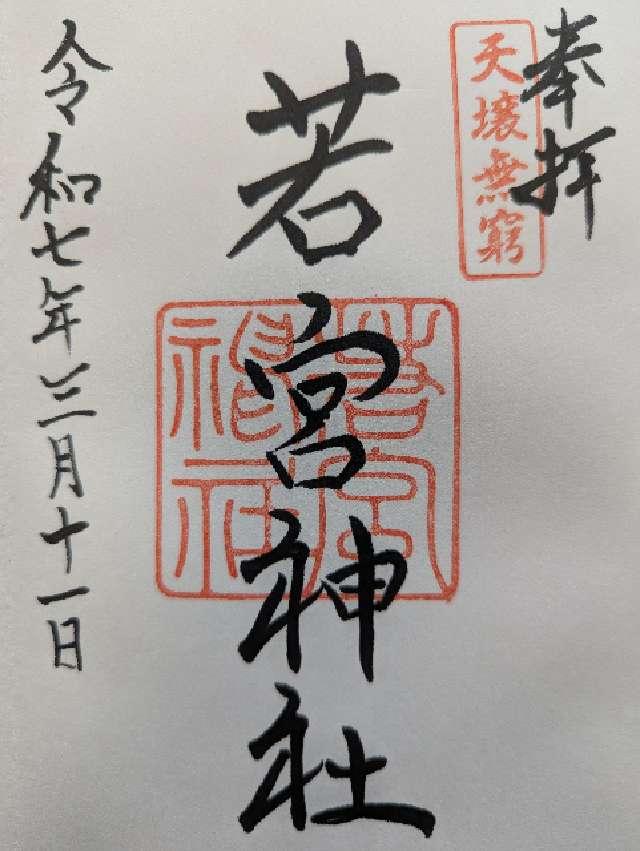 奉拝
天壌無窮
若宮神社
若宮神社
令和七年三月十一日